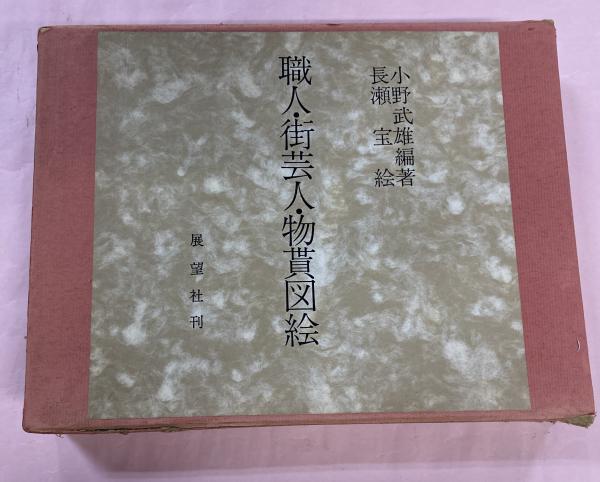 小野武雄編著
長瀬宝絵
職人・街芸人・物貰図絵
展望社刊